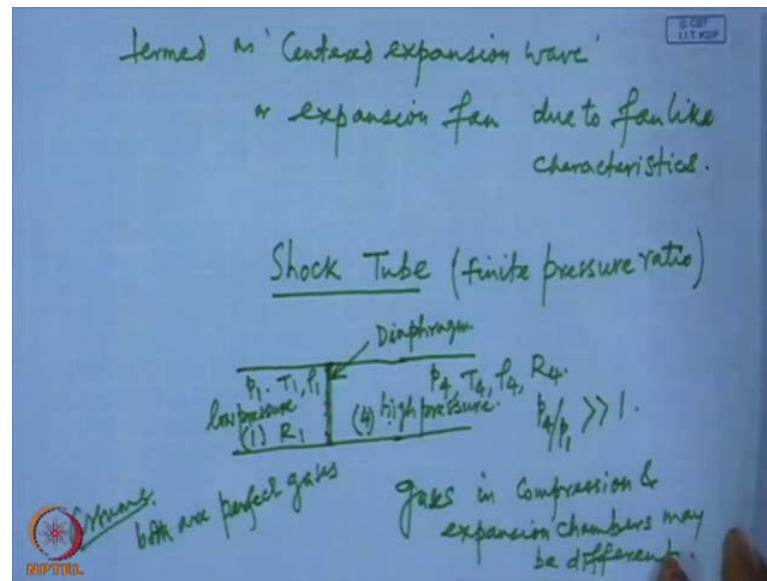 termed as 'Centered expansion wave'
or expansion fan due to fanlike
characteristics.
© CET
I.I.T. KGP
Shock Tube (finite pressure ratio)
Diaphragm
p₁. T₁, ρ₁
low pressure
(1) R₁
p₄, T₄, ρ₄, R₄.
(4) high pressure.
p₄/p₁ >> 1.
Assume.
both are perfect gases
gases in compression &
expansion chambers may
be different.
NPTEL